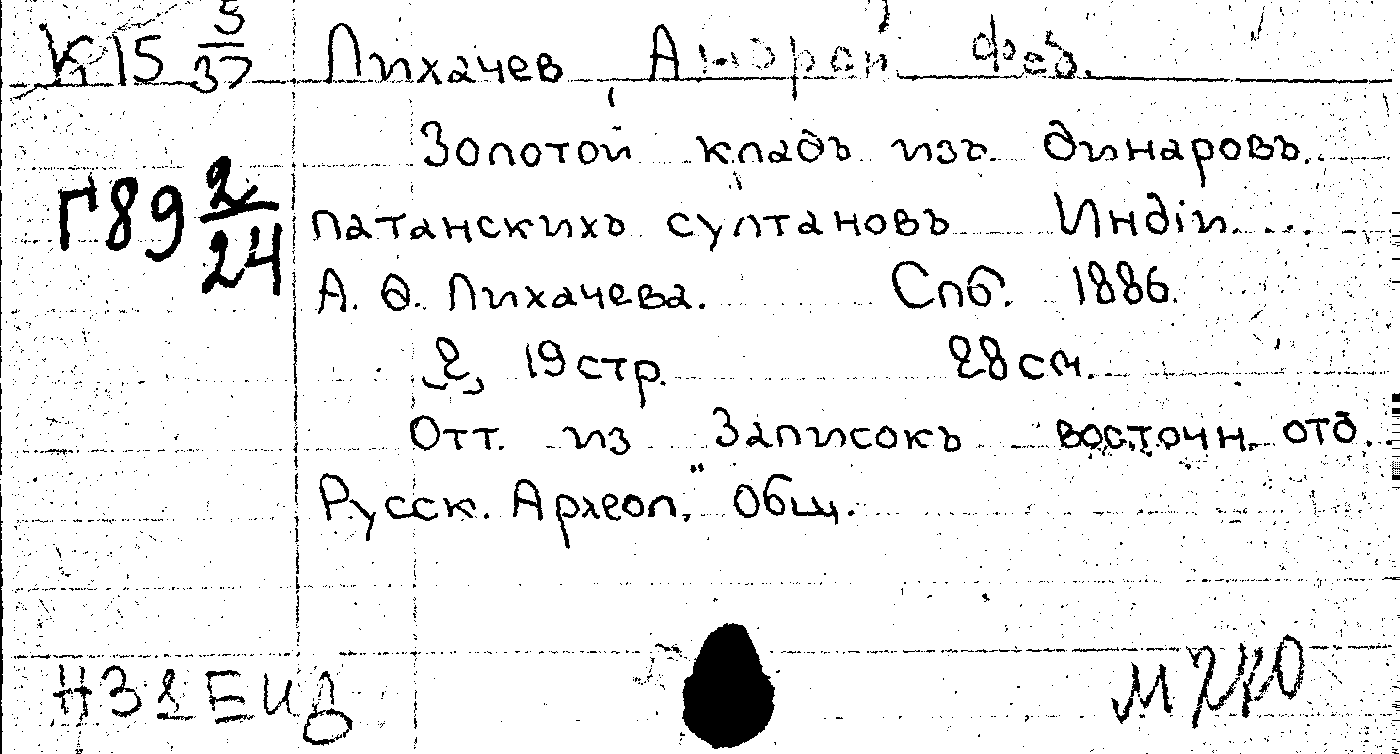 К15 5/37 Лихачев Андрей Фед.
Золотой кладъ изъ динаровъ
Г89 2/24 патанскихъ султановъ Индіи....
А. Ѳ. Лихачева. Спб. 1886.
2, 19 стр. 28 см.
Отт. из "Записокъ восточн. отд.
Русск. Археол." Общ.